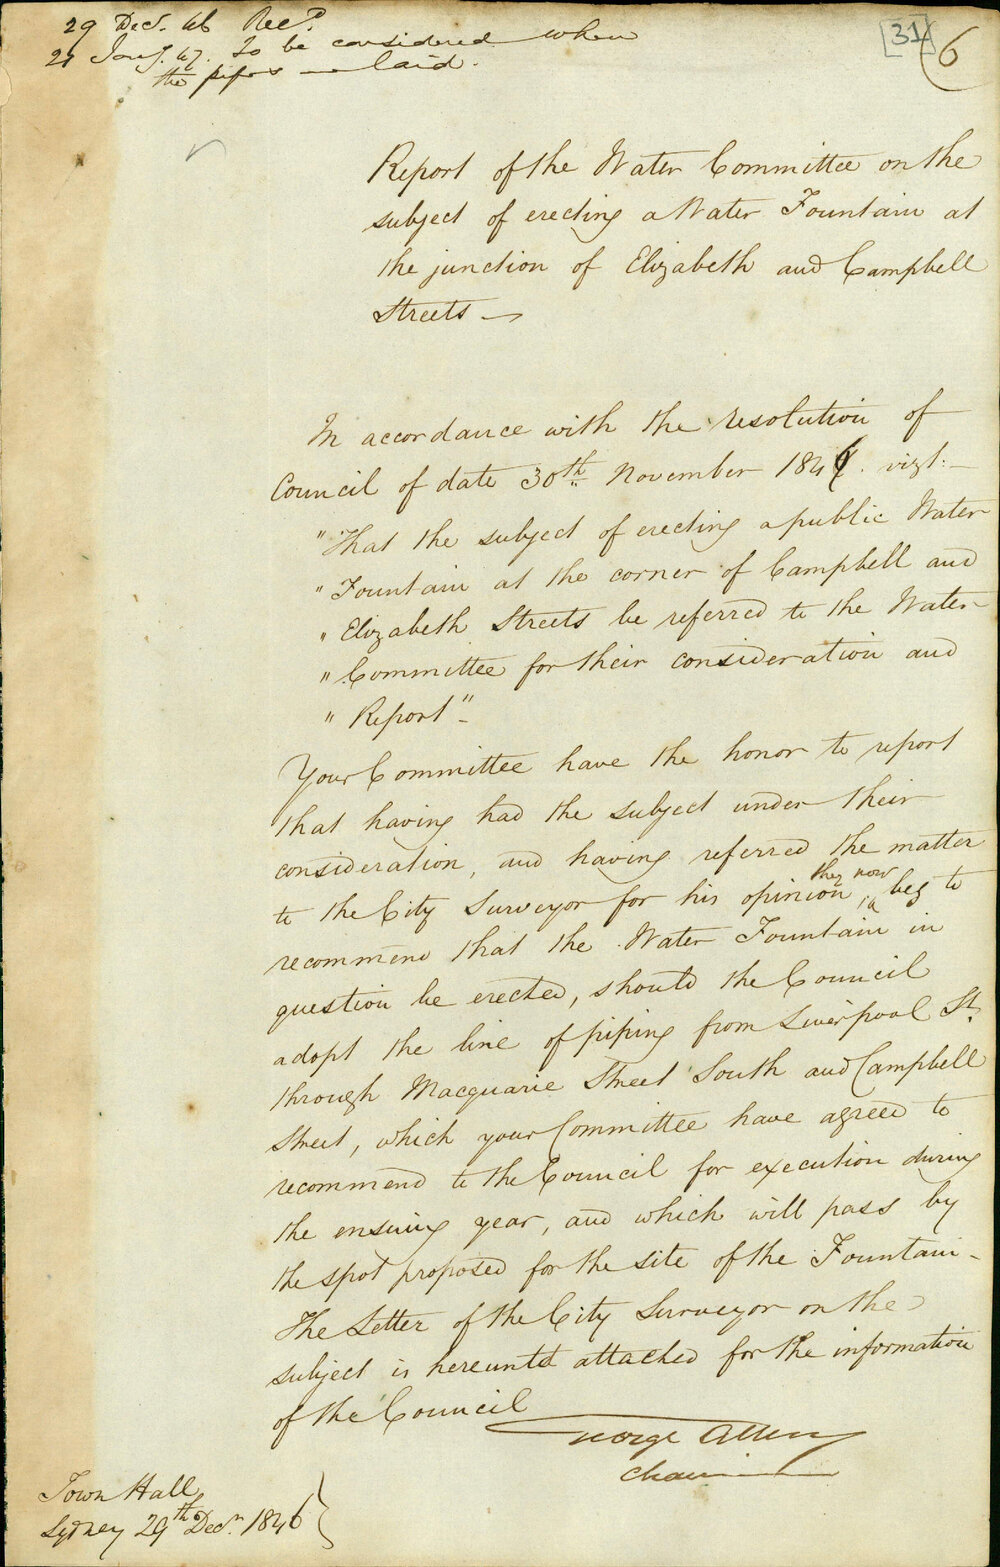 29 Decr. 46 Recd.
21 Jany. 47. To be considered when
the pipes are laid.
[31]
6
Report of the Water Committee on the
subject of erecting a Water Fountain at
the junction of Elizabeth and Campbell
Streets —
In accordance with the resolution of
Council of date 30th November 1846. vizt:—
"That the subject of erecting a public Water
" Fountain at the corner of Campbell and
" Elizabeth Streets be referred to the Water
" Committee for their consideration and
" Report"-
Your Committee have the honor to report
that having had the subject under their
consideration, and having referred the matter
to the City Surveyor for his opinion, they now beg to
recommend that the Water Fountain in
question be erected, should the Council
adopt the line of piping from Liverpool St.
through Macquarie Street South and Campbell
Street, which your Committee have agreed to
recommend to the Council for execution during
the ensuing year, and which will pass by
the spot proposed for the site of the Fountain-
The Letter of the City Surveyor on the
subject is hereunto attached for the information
of the Council
George Allen
Chairn
Town Hall
Sydney 29th Decr. 1846